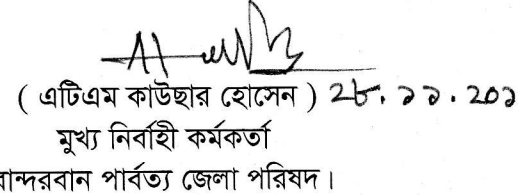 ( এটিএম কাউছার হোসেন ) ২৮. ১১. ২০১
মুখ্য নির্বাহী কর্মকর্তা
বান্দরবান পার্বত্য জেলা পরিষদ।